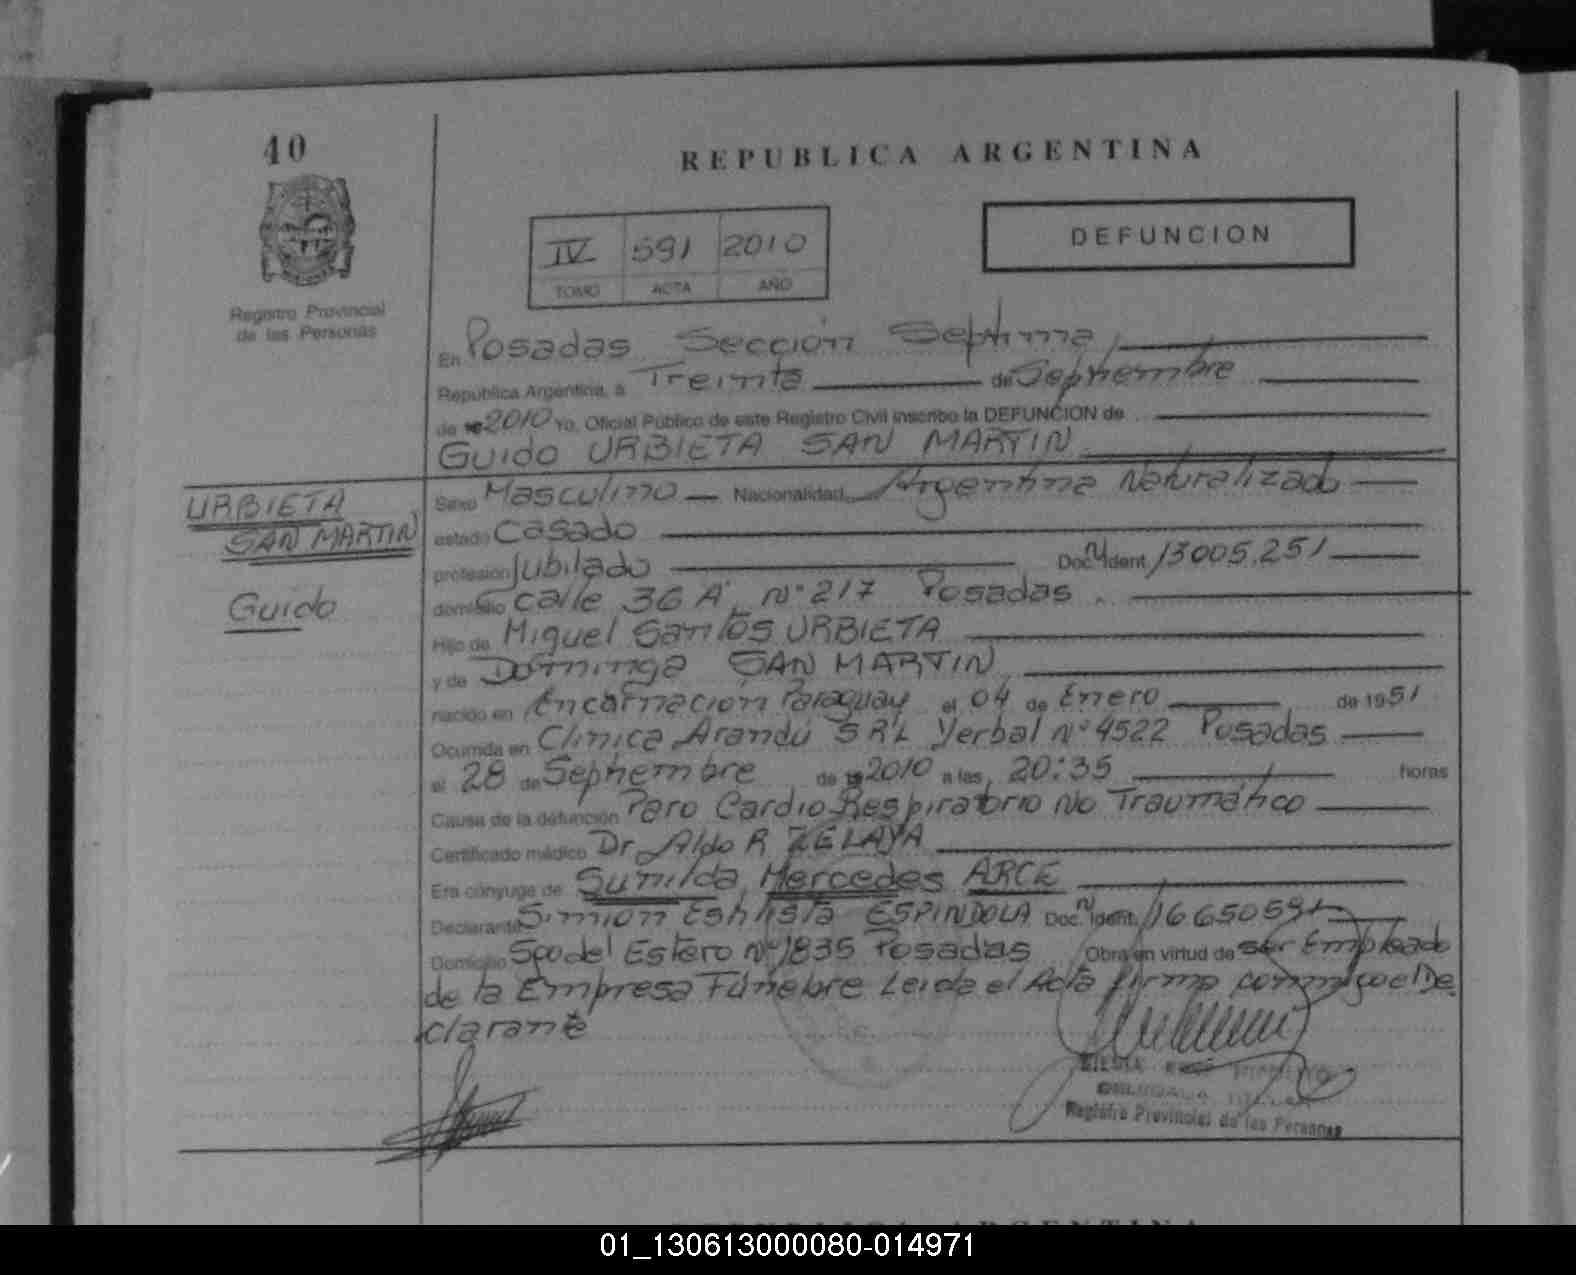 40
REPUBLICA ARGENTINA
IV 591 2010
TOMO ACTA AÑO
DEFUNCION
Registro Provincial
de las Personas
En Posadas Sección Septima
República Argentina, a Treinta de Septiembre
de 2010 Yo, Oficial Público de este Registro Civil inscribo la DEFUNCION de
Guido URBIETA SAN MARTIN
URBIETA
SAN MARTIN
Guido
Sexo Masculino Nacionalidad Argentina Naturalizado
estado Casado
profesión Jubilado Doc. N Ident. 13005.251
domicilio Calle 36 A N° 217 Posadas
Hijo de Miguel Santos URBIETA
y de Dominga SAN MARTIN
nacido en Encarnación Paraguay el 04 de Enero de 1951
Ocurrida en Clínica Arandú SRL Yerbal N° 4522 Posadas
el 28 de Septiembre de 2010 a las 20:35 horas
Causa de la defunción Paro Cardio Respiratorio No Traumático
Certificado médico Dr Aldo R ZELAYA
Era cónyuge de Sunilda Mercedes ARCE
Declarante Simion ESPINDOLA Doc. N Ident. 16650591
Domicilio Sgo del Estero N° 1835 Posadas Obra en virtud de ser Empleado
de la Empresa Fúnebre Leida el Acta firma conmigo el De
clarante
Registro Provincial de las Personas
REPUBLICA ARGENTINA
01_130613000080-014971